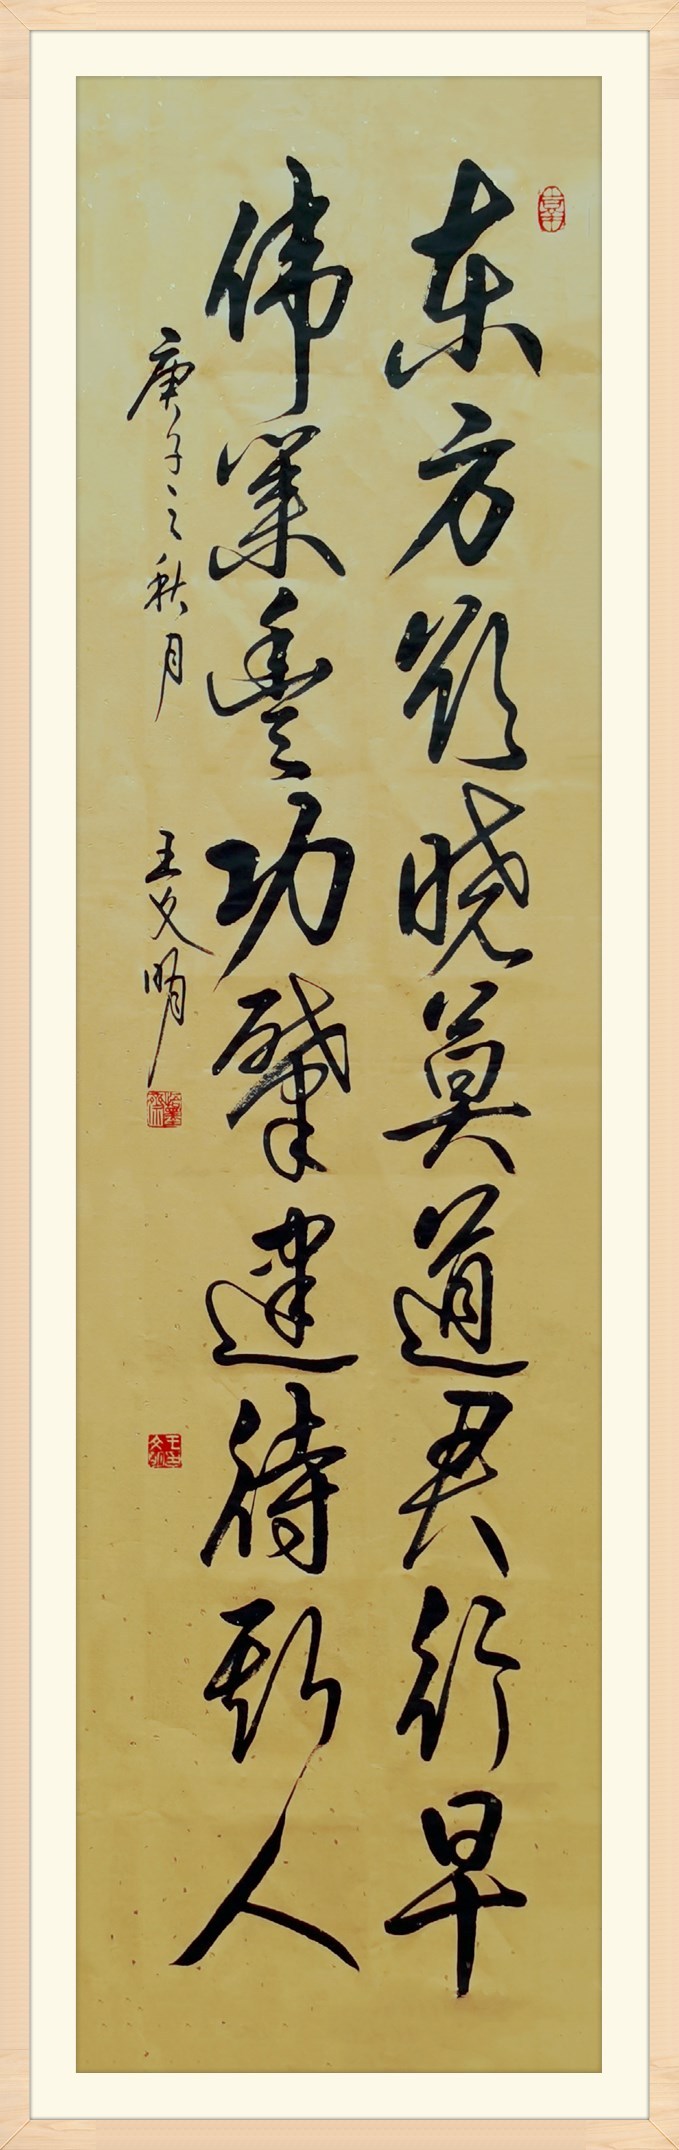 东方欲晓莫道君行早
伟業豐功肇建待斯人
庚子之秋月 王文明